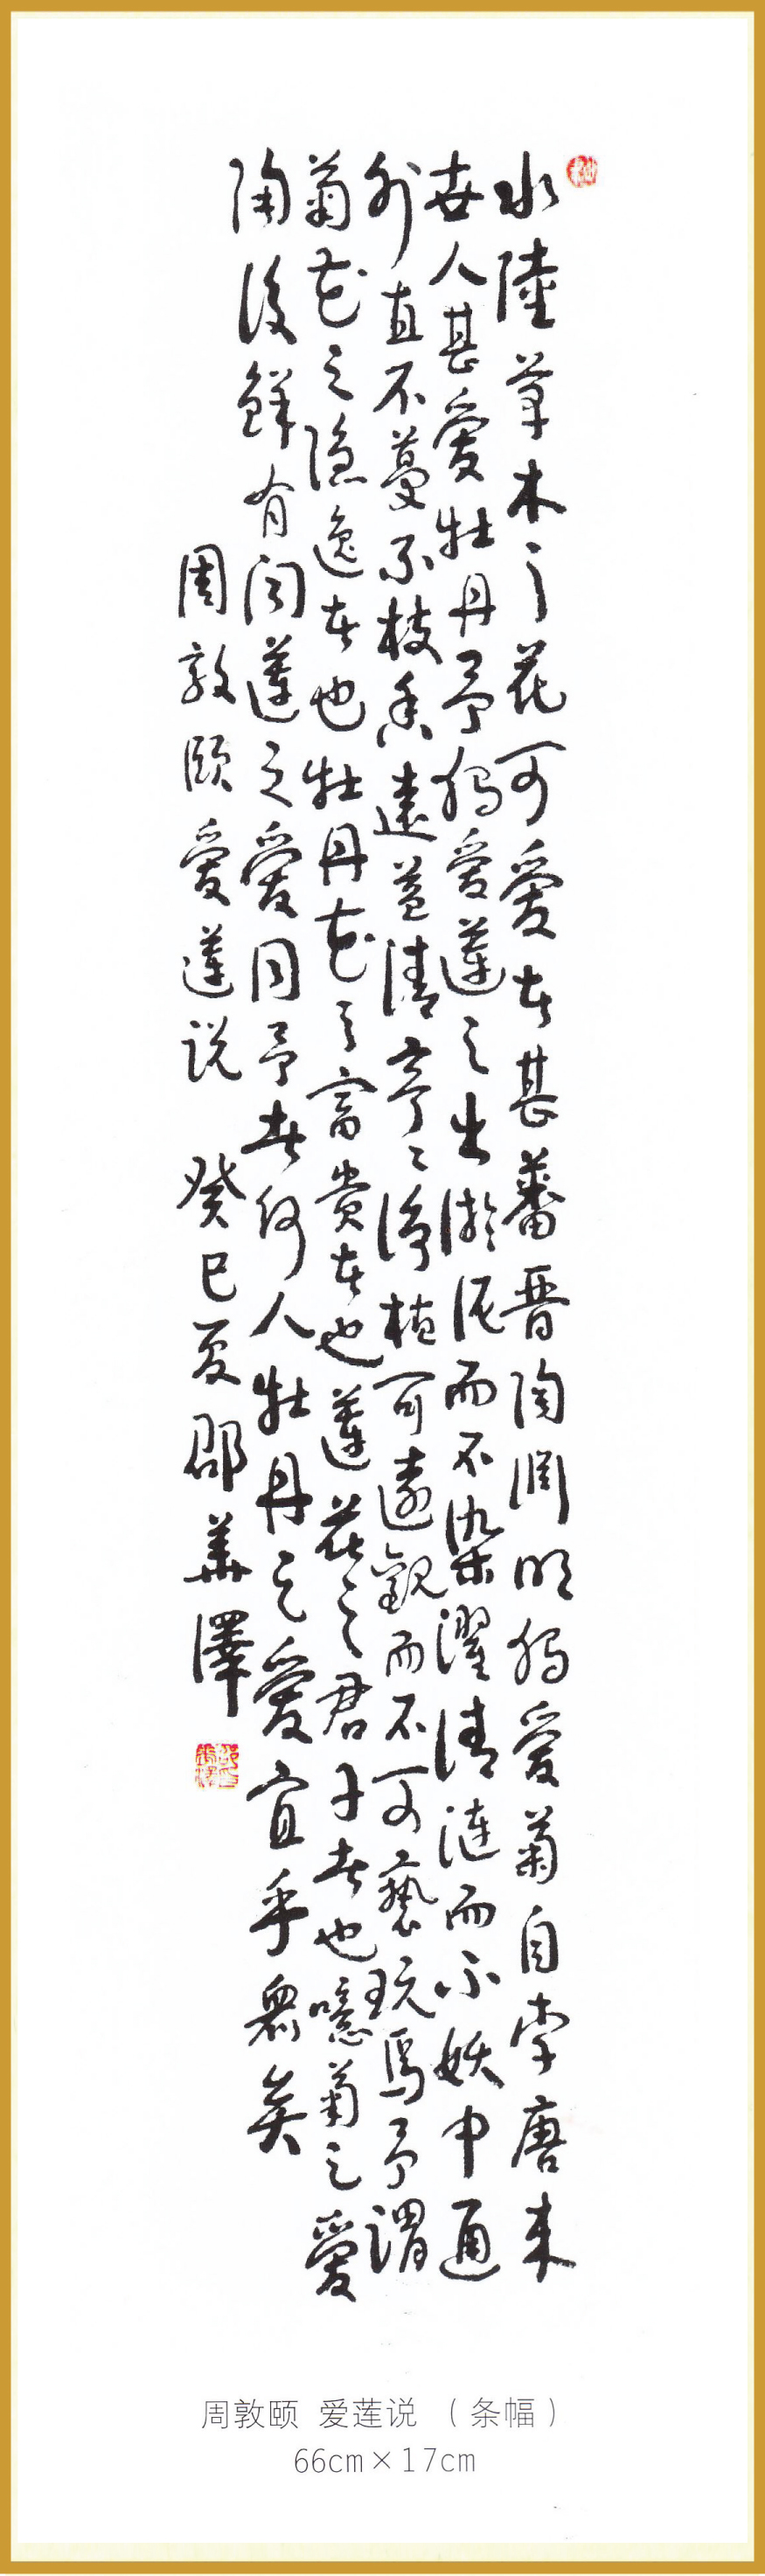 水陸草木之花可愛者甚蕃晋陶渊明獨愛菊自李唐来
世人甚愛牡丹予獨愛蓮之出淤泥而不染濯清涟而不妖中通
外直不蔓不枝香遠益清亭〻净植可遠觀而不可褻玩焉予謂
菊花之隐逸者也牡丹花之富貴者也蓮花之君子者也噫菊之愛
陶後鮮有闻蓮之愛同予者何人牡丹之愛宜乎衆矣
周敦颐愛蓮说 癸巳夏邵華澤
周敦颐 爱莲说 （条幅）
66cm×17cm